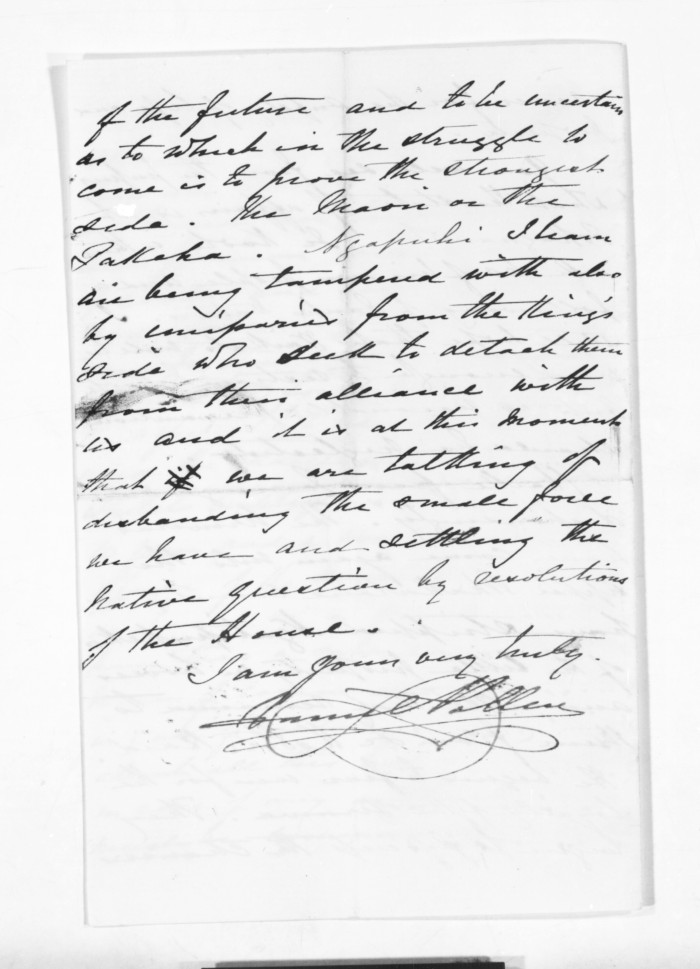 of the future and to be uncertain
as to which in the struggle to
come is to prove the strongest
side. The Maori or the
Pakeha. Ngapuhi I hear
are being tampered with also
by emissaries from the King's
side who seek to detach them
from their alliance with
us and it is at this moment
that we are talking of
disbanding the small force
we have and settling the
Native question by resolutions
of the House.
I am yours very truly.
Daniel Pollen